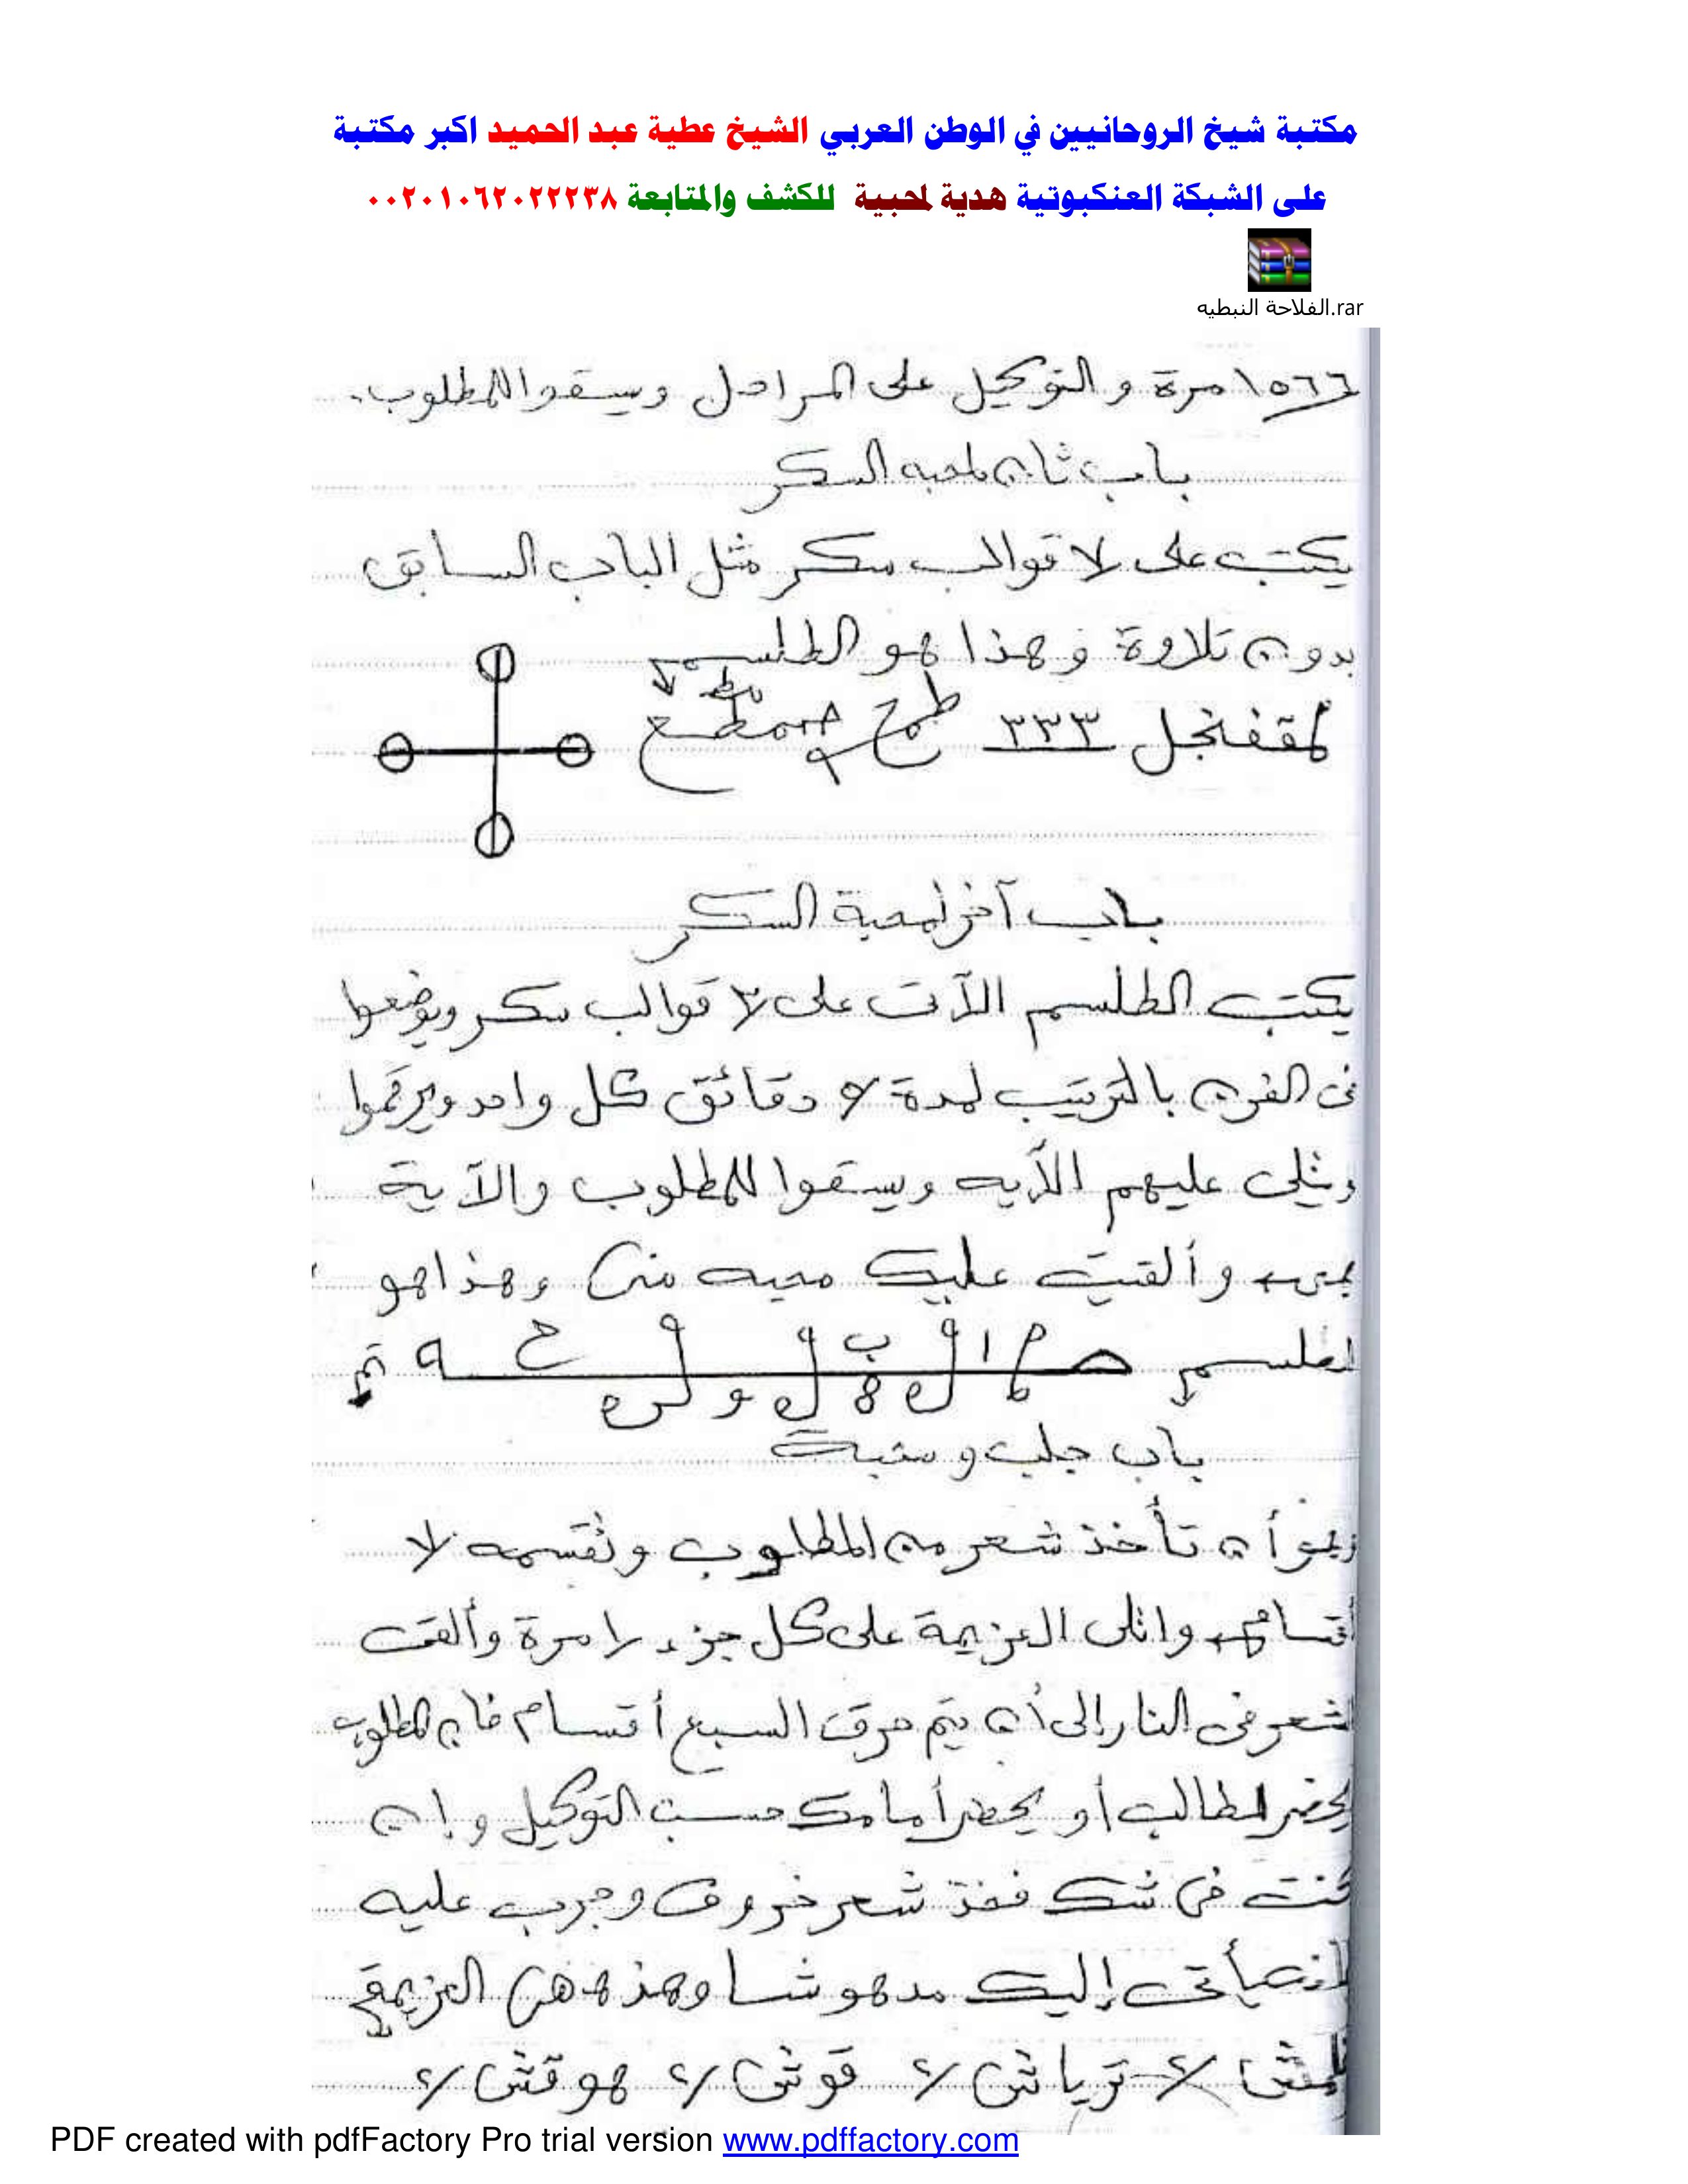 مكتبة شيخ الروحانيين في الوطن العربي الشيخ عطية عبد الحميد اكبر مكتبة
على الشبكة العنكبوتية هدية لمحبية للكشف والمتابعة ٠٠٢٠١٠٦٢٠٢٢٢٣٨
الفلاحة النبطيه.rar
١٥٦٦ مرة والتوكيل على المراحل ويسقوا للمطلوب.
باب ثان لمحبه السكر
يكتب على ٧ قوالب سكر مثل الباب السابق
بدون تلاوة وهذا هو الطلسم
٣٣٣ طمح
باب آخر لمحبة السكر
يكتب الطلسم الآتى على ٧ قوالب سكر ويوضعوا
فى الفرن بالترتيب لمدة ٧ دقائق كل واحد ويرقموا
وتلى عليهم الآيه ويسقوا للمطلوب والآية
هى وألقيت عليك محبه منى وهذا هو
الطلسم
باب جلب
وهو أن تأخذ شعر من المطلوب وتقسمه ٧
أقسام واتلى العزيمة على كل جزء مرة وألقى
الشعر فى النار إلى أن يتم حرق السبع أقسام فإن المطلوب
يحضر للطالب أو يحضر أمامك حسب التوكيل وإن
كنت فى شك فخذ شعر خروف وجرب عليه
يأتى إليك مدهوشا وهذه هى العزيمة
ترياش ٢/ قوش ٢/ هوقش ٢/
PDF created with pdfFactory Pro trial version www.pdffactory.com